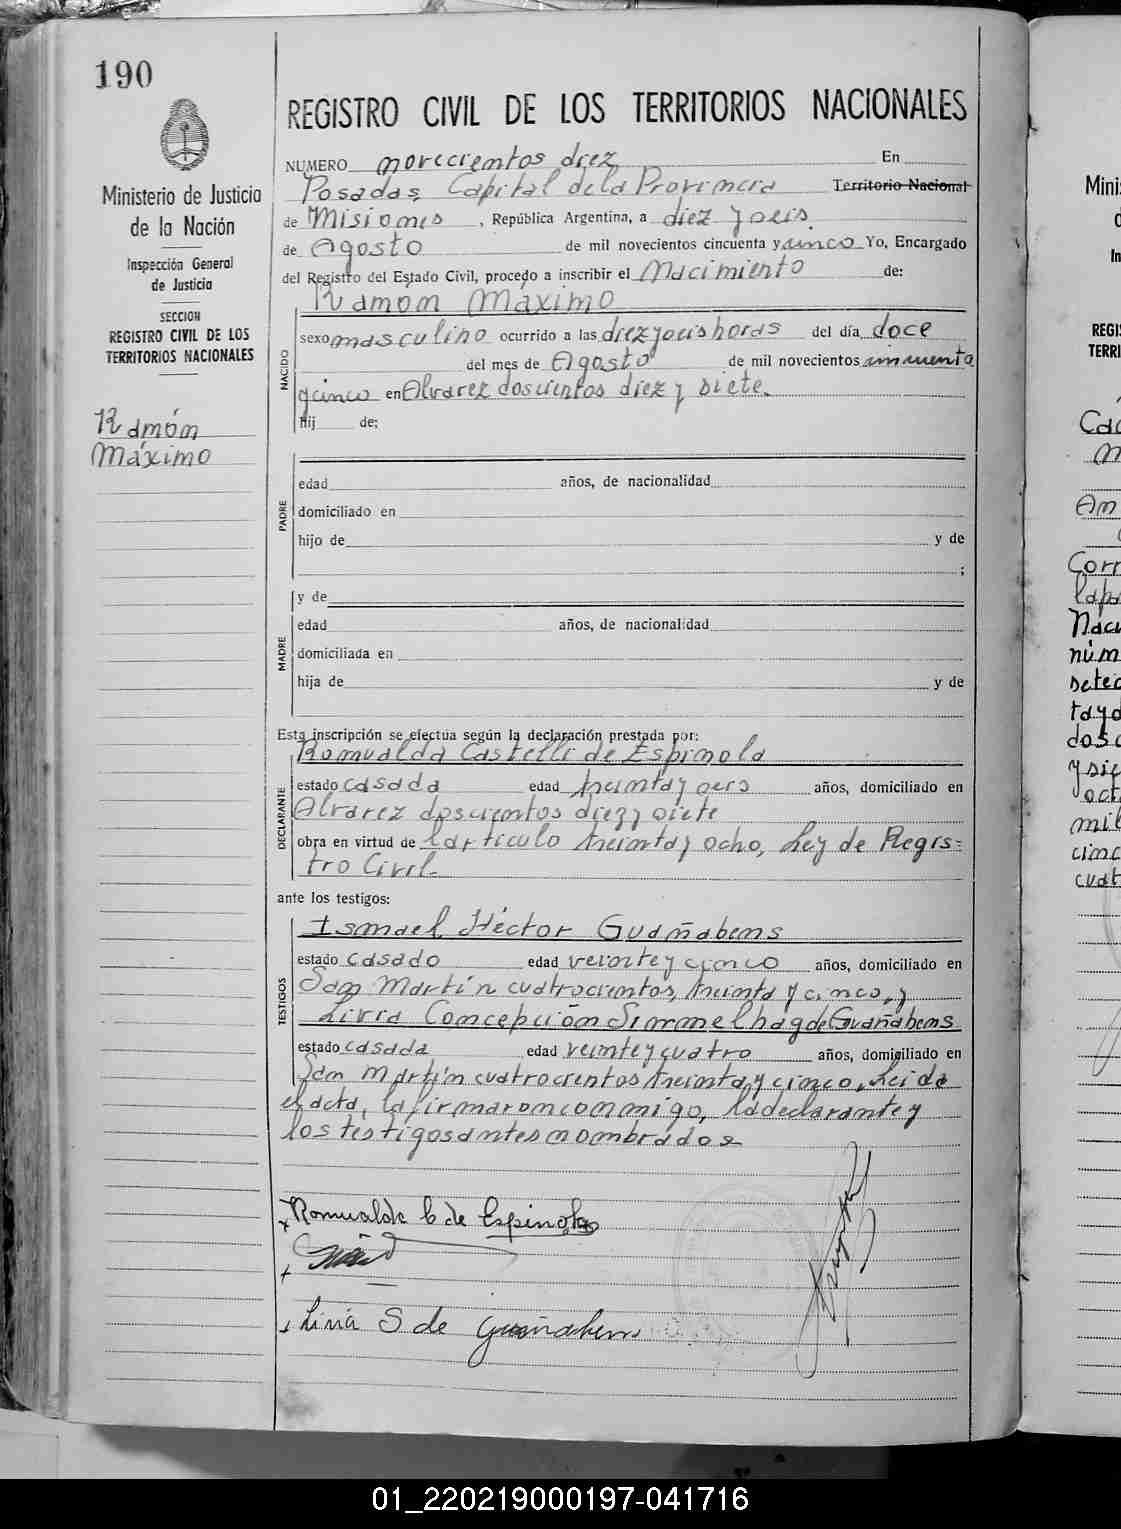 190
Ministerio de Justicia
de la Nación
Inspección General
de Justicia
SECCION
REGISTRO CIVIL DE LOS
TERRITORIOS NACIONALES
Ramón
Máximo
REGISTRO CIVIL DE LOS TERRITORIOS NACIONALES
NUMERO novecientos diez En
Posadas, Capital de la Provincia Territorio Nacional
de Misiones, República Argentina, a diez y seis
de Agosto de mil novecientos cincuenta y cinco Yo, Encargado
del Registro del Estado Civil, procedo a inscribir el Nacimiento de:
Ramón Máximo
NACIDO
sexo masculino ocurrido a las diez y seis horas del día doce
del mes de Agosto de mil novecientos cincuenta
y cinco en Alvarez doscientos diez y siete.
Hij de:
PADRE
edad años, de nacionalidad
domiciliado en
hijo de y de
;
MADRE
y de
edad años, de nacionalidad
domiciliada en
hija de y de
Esta inscripción se efectúa según la declaración prestada por:
DECLARANTE
Romualda Castelli de Espínola
estado casada edad treinta y seis años, domiciliado en
Alvarez doscientos diez y siete
obra en virtud de l artículo treinta y ocho, Ley de Regis=
tro Civil.
ante los testigos:
TESTIGOS
Ismael Héctor Guañabens
estado casado edad veinte y cinco años, domiciliado en
San Martín cuatrocientos treinta y cinco, y
Livia Concepción Simmelhag de Guañabens
estado casada edad veinte y cuatro años, domiciliado en
San Martín cuatrocientos treinta y cinco. Leida
el acta, la firmaron conmigo, la declarante y
los testigos antes nombrados
Romualda C de Espinola
Livia S de Guañabens
Minis
In
REGIS
TERRI
Corr
Nacu
núm
setec
ta y o
dosc
y sie
oct
mil
cinc
cuat
01_220219000197-041716